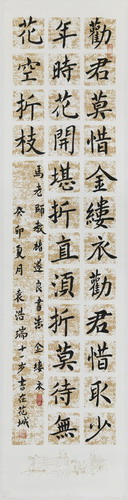 勸君莫惜金縷衣勸君惜取少
年時花開堪折直須折莫待無
花空折枝
馬老師教褚遂良書法金縷衣
癸卯夏月袁浩瑞十一岁書在花城